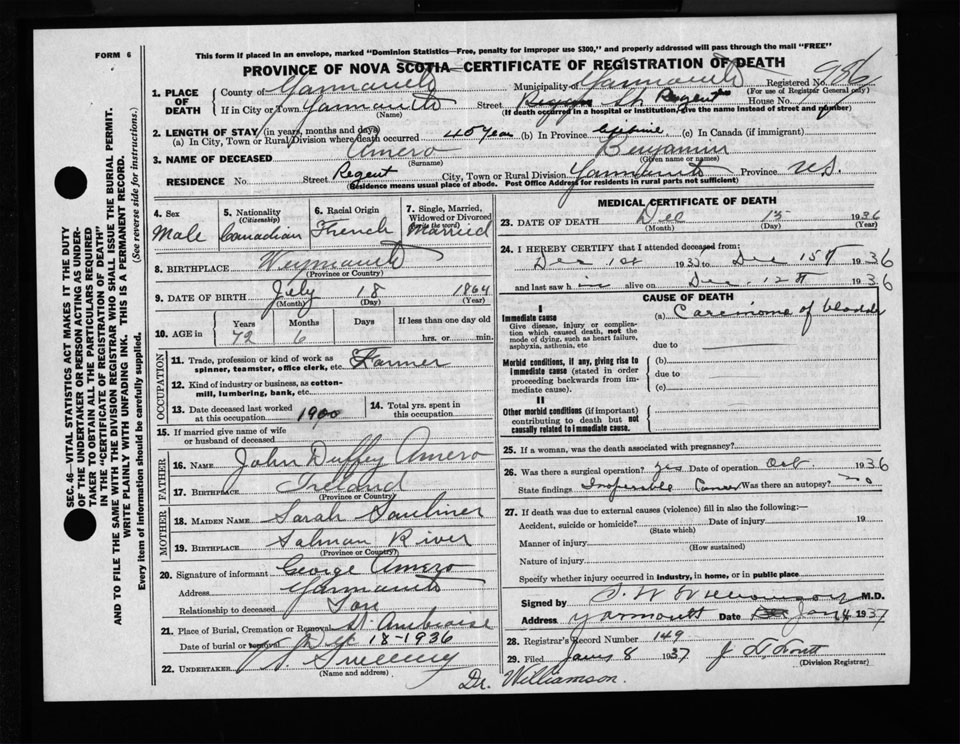 FORM 6
This form if placed in an envelope, marked "Dominion Statistics—Free, penalty for improper use $300," and properly addressed will pass through the mail "FREE"
PROVINCE OF NOVA SCOTIA—CERTIFICATE OF REGISTRATION OF DEATH
986
Registered No.
(For use of Registrar General only)
1. PLACE OF DEATH
County of Yarmouth Municipality of Yarmouth
If in City or Town Yarmouth Street St. Regent House No.
(Name) (If death occurred in a hospital or institution, give the name instead of street and number)
2. LENGTH OF STAY (in years, months and days)
(a) In City, Town or Rural Division where death occurred 40 Year (b) In Province lifetime (c) In Canada (if immigrant)
3. NAME OF DECEASED Amero Benjamin
(Surname) (Given name or names)
RESIDENCE No. Street Regent City, Town or Rural Division Yarmouth Province N.S.
(Residence means usual place of abode. Post Office Address for residents in rural parts not sufficient)
4. Sex
Male
5. Nationality
(Citizenship)
Canadian
6. Racial Origin
French
7. Single, Married, Widowed or Divorced
(Write the word)
Married
8. BIRTHPLACE Weymouth
(Province or Country)
9. DATE OF BIRTH July 18 1864
(Month) (Day) (Year)
10. AGE in Years Months Days If less than one day old
72 6 hrs. or min.
OCCUPATION
11. Trade, profession or kind of work as spinner, teamster, office clerk, etc. Farmer
12. Kind of industry or business, as cotton-mill, lumbering, bank, etc.
13. Date deceased last worked at this occupation 1900
14. Total yrs. spent in this occupation
15. If married give name of wife or husband of deceased
FATHER
16. NAME John Duffey Amero
17. BIRTHPLACE Ireland
(Province or Country)
MOTHER
18. MAIDEN NAME Sarah Saulnier
19. BIRTHPLACE Salmon River
(Province or Country)
20. Signature of informant George Amero
Address Yarmouth
Relationship to deceased Son
21. Place of Burial, Cremation or Removal St. Ambroise
Date of burial or removal Dec 18-1936
22. UNDERTAKER Sweeny
(Name and address)
MEDICAL CERTIFICATE OF DEATH
23. DATE OF DEATH Dec 15 1936
(Month) (Day) (Year)
24. I HEREBY CERTIFY that I attended deceased from:
Dec 1st 193 to Dec 15th 1936
and last saw him alive on Dec. 12th 1936
CAUSE OF DEATH
I
Immediate cause
Give disease, injury or complication which caused death, not the mode of dying, such as heart failure, asphyxia, asthenia, etc
(a) Carcinoma of bladder
due to
Morbid conditions, if any, giving rise to immediate cause (stated in order proceeding backwards from immediate cause).
(b)
due to
(c)
II
Other morbid conditions (if important) contributing to death but not causally related to immediate cause.
25. If a woman, was the death associated with pregnancy?
26. Was there a surgical operation? yes Date of operation Oct 1936
State findings Inoperable Cancer Was there an autopsy? no
27. If death was due to external causes (violence) fill in also the following:—
Accident, suicide or homicide? Date of injury 19
(State which)
Manner of injury
(How sustained)
Nature of injury
Specify whether injury occurred in industry, in home, or in public place
Signed by S. W. Williamson M.D.
Address Yarmouth Date Jan 1937
28. Registrar's Record Number 149
29. Filed Jany 8 1937
(Division Registrar)
Dr. Williamson.
SEC. 46—VITAL STATISTICS ACT MAKES IT THE DUTY
OF THE UNDERTAKER OR PERSON ACTING AS UNDERTAKER
TO OBTAIN ALL THE PARTICULARS REQUIRED
IN THE "CERTIFICATE OF REGISTRATION OF DEATH"
AND TO FILE THE SAME WITH THE DIVISION REGISTRAR WHO SHALL ISSUE THE BURIAL PERMIT.
WRITE PLAINLY WITH UNFADING INK. THIS IS A PERMANENT RECORD.
Every item of information should be carefully supplied. (See reverse side for instructions.)